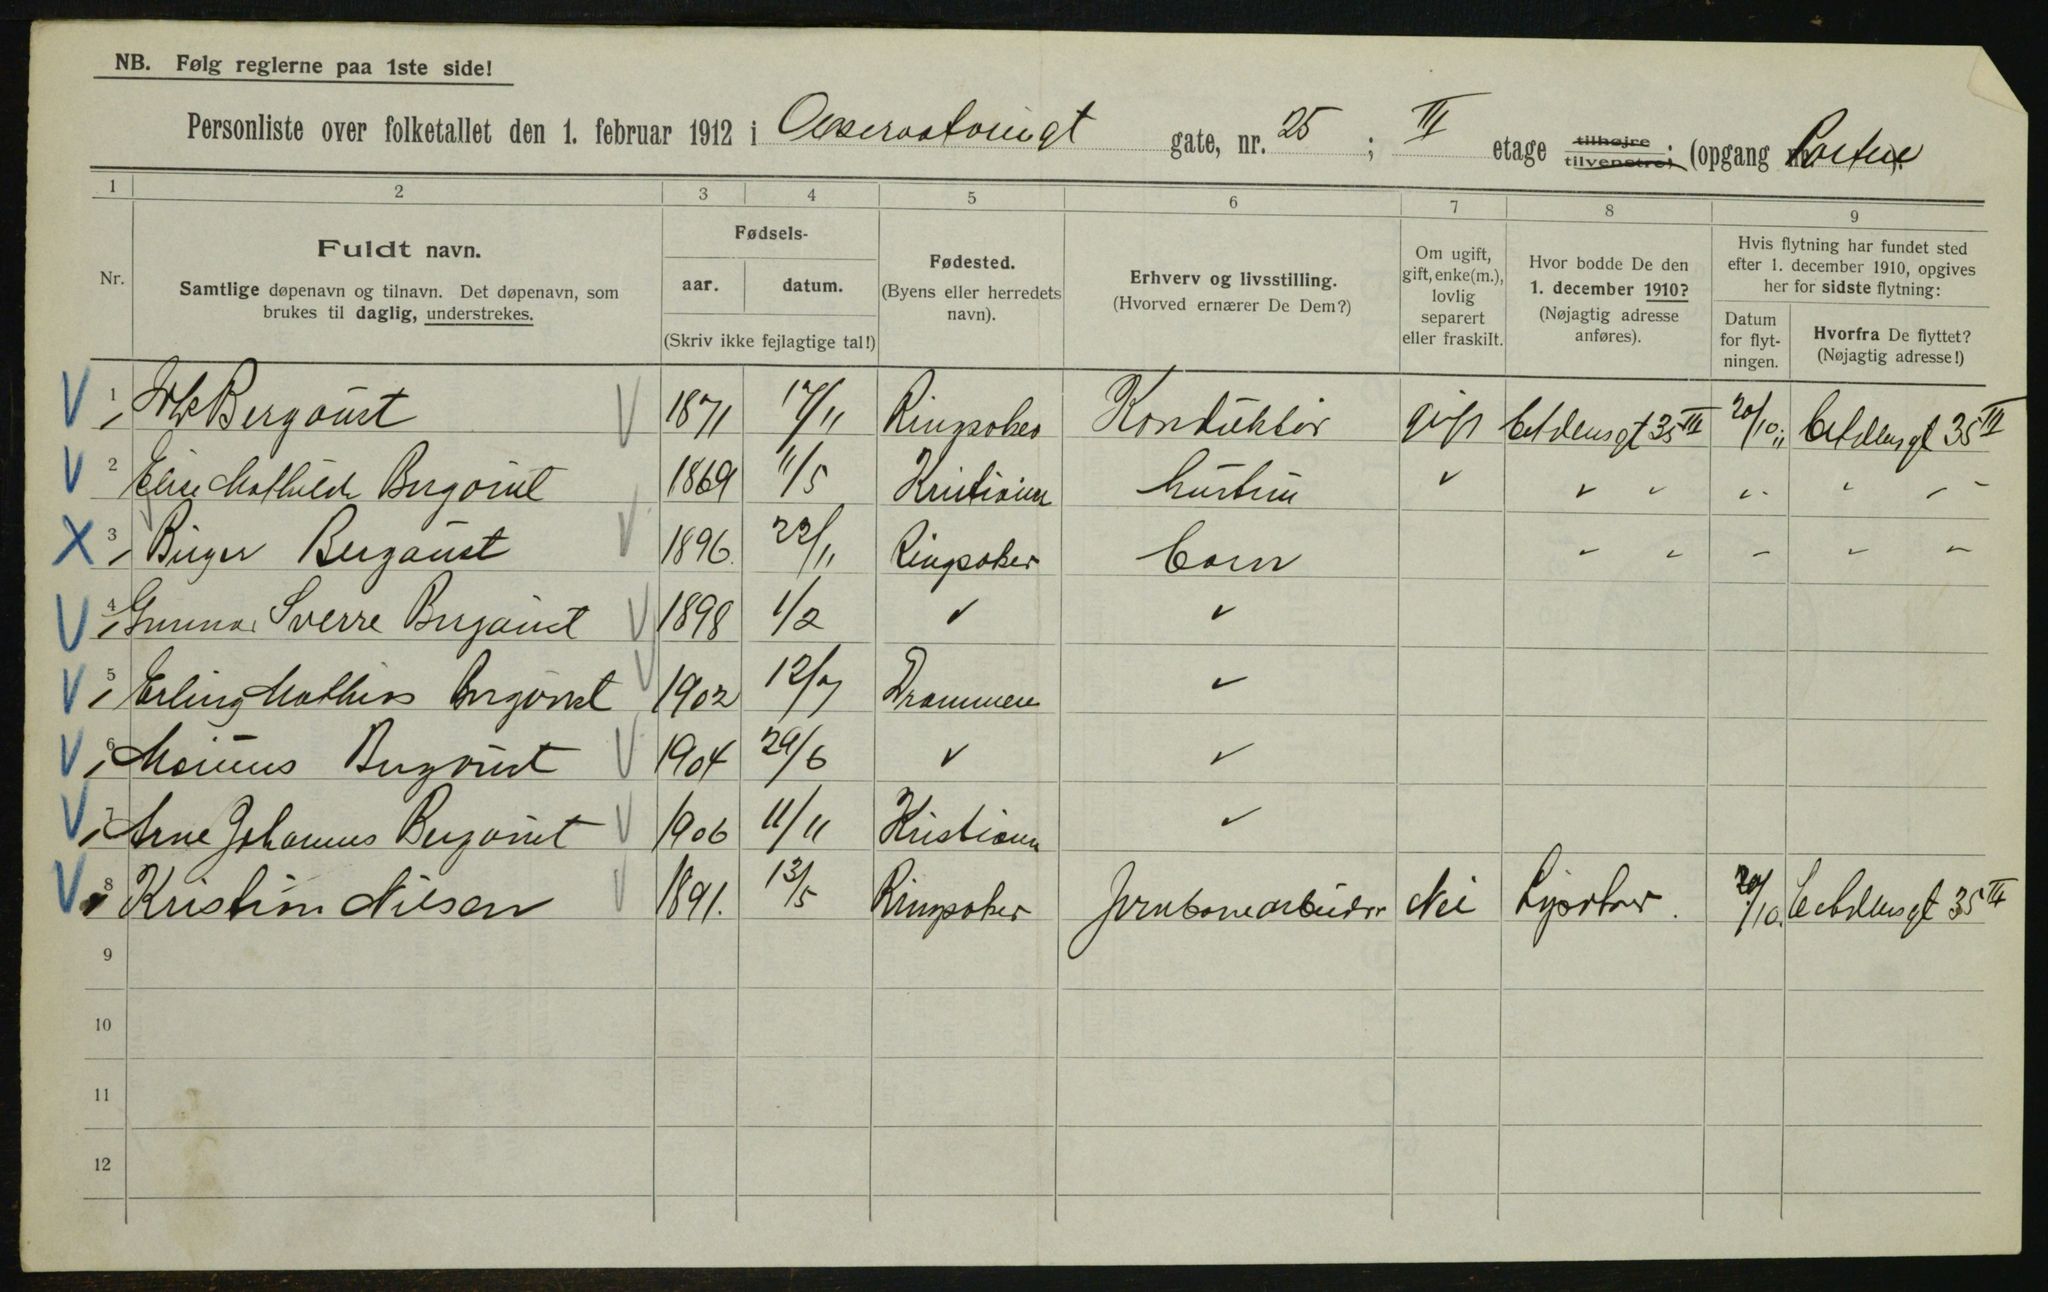 NB. Følg reglerne paa 1ste side!
Personliste over folketallet den 1. februar 1912 i Observatoriegt gate, nr. 25 ; III etage tilhøjre tilvenstre; (opgang nr. Porten).
1 2 3 4 5 6 7 8 9
Nr.
Fuldt navn.
Samtlige døpenavn og tilnavn. Det døpenavn, som
brukes til daglig, understrekes.
Fødsels-
aar. datum.
(Skriv ikke fejlagtige tal!)
Fødested.
(Byens eller herredets
navn).
Erhverv og livsstilling.
(Hvorved ernærer De Dem?)
Om ugift,
gift, enke(m.),
lovlig
separert
eller fraskilt.
Hvor bodde De den
1. december 1910?
(Nøjagtig adresse
anføres).
Hvis flytning har fundet sted
efter 1. december 1910, opgives
her for sidste flytning:
Datum
for flyt-
ningen.
Hvorfra De flyttet?
(Nøjagtig adresse!)
1 Bergquist 1871 17/11 Ringsaker Konduktør gift 35 III 20/10 11 35 III
2 Elise Mathilde Bergquist 1869 11/5 Kristiania hustru " " " " " "
3 Birger Bergquist 1896 22/11 Ringsaker barn " " " " "
4 Gunnar Sverre Bergquist 1898 1/2 " "
5 Erling Mathias Bergquist 1902 12/7 Drammen "
6 Bergquist 1904 29/6 " "
7 Arne Johannes Bergquist 1906 11/11 Kristiania "
8 Kristian Nilsen 1891. 13/5 Ringsaker Jernbanearbeider Nei 20/10. 35 III
9
10
11
12